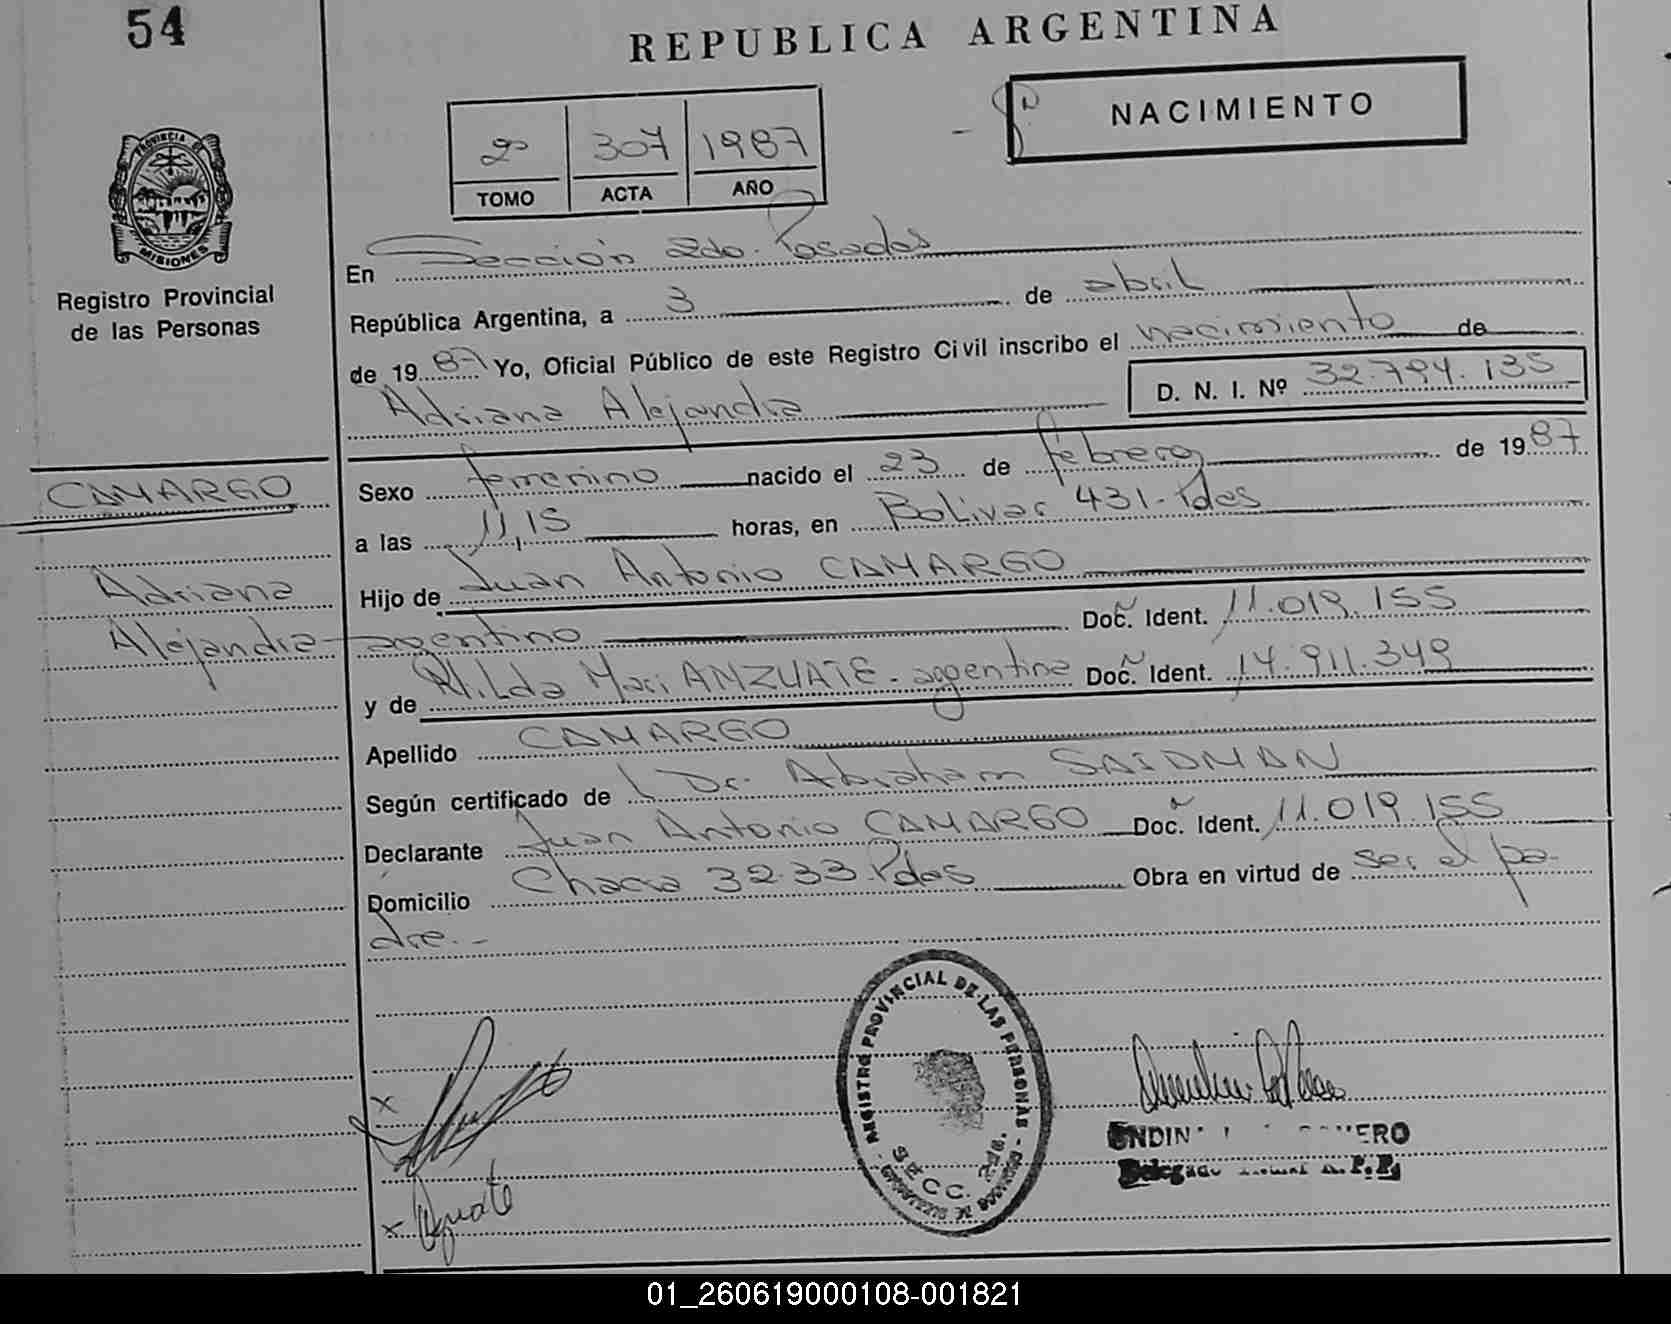 54
REPUBLICA ARGENTINA
NACIMIENTO
2º 307 1987
TOMO ACTA AÑO
PROVINCIA DE
MISIONES
Registro Provincial
de las Personas
En Sección 2do. Posadas
República Argentina, a 3 de abril
de 1987 Yo, Oficial Público de este Registro Civil inscribo el nacimiento de
Adriana Alejandra D. N. I. Nº 32.794.135
CAMARGO
Adriana
Alejandra
Sexo femenino nacido el 23 de febrero de 1987
a las 11,15 horas, en Bolivar 431-Pdas
Hijo de Juan Antonio CAMARGO
argentino Doc. Ident. 11.019.155
y de Hilda Mari ANZUATE - argentina Doc. Ident. 14.911.349
Apellido CAMARGO
Según certificado de Dr. Abraham SAIDMAN
Declarante Juan Antonio CAMARGO Doc. Ident. 11.019.155
Domicilio Chacra 32-33 Pdas Obra en virtud de ser el pa-
dre.-
REGISTRO PROVINCIAL DE LAS PERSONAS
SECC.
X
X
01_260619000108-001821